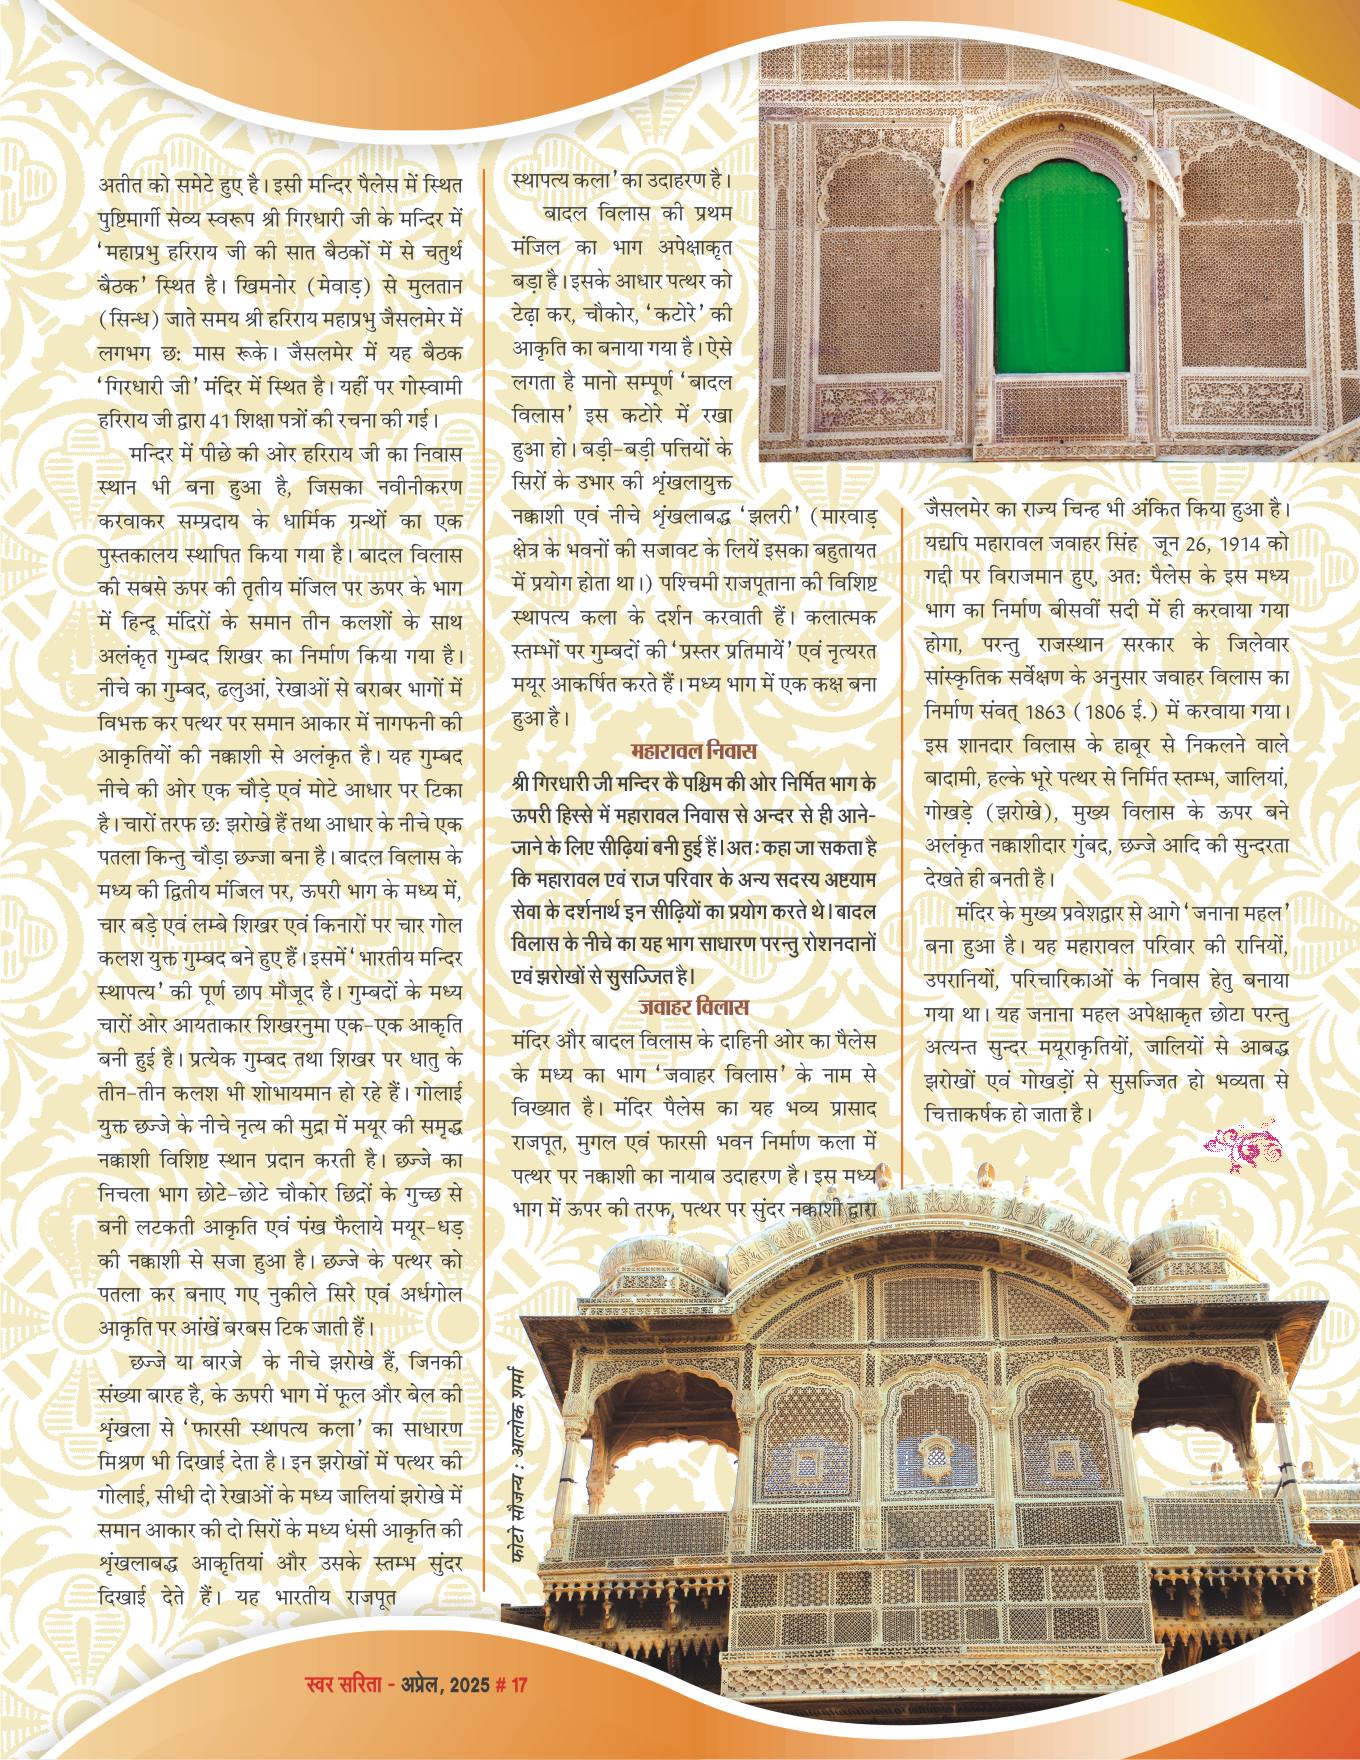 अतीत को समेटे हुए है। इसी मन्दिर पैलेस में स्थित
पुष्टिमार्गी सेव्य स्वरूप श्री गिरधारी जी के मन्दिर में
‘महाप्रभु हरिराय जी की सात बैठकों में से चतुर्थ
बैठक’ स्थित है। खिमनोर (मेवाड़) से मुलतान
(सिन्ध) जाते समय श्री हरिराय महाप्रभु जैसलमेर में
लगभग छः मास रूके। जैसलमेर में यह बैठक
‘गिरधारी जी’ मंदिर में स्थित है। यहीं पर गोस्वामी
हरिराय जी द्वारा 41 शिक्षा पत्रों की रचना की गई।
मन्दिर में पीछे की ओर हरिराय जी का निवास
स्थान भी बना हुआ है, जिसका नवीनीकरण
करवाकर सम्प्रदाय के धार्मिक ग्रन्थों का एक
पुस्तकालय स्थापित किया गया है। बादल विलास
की सबसे ऊपर की तृतीय मंजिल पर ऊपर के भाग
में हिन्दू मंदिरों के समान तीन कलशों के साथ
अलंकृत गुम्बद शिखर का निर्माण किया गया है।
नीचे का गुम्बद, ढलुआं, रेखाओं से बराबर भागों में
विभक्त कर पत्थर पर समान आकार में नागफनी की
आकृतियों की नक्काशी से अलंकृत है। यह गुम्बद
नीचे की ओर एक चौड़े एवं मोटे आधार पर टिका
है। चारों तरफ छः झरोखे हैं तथा आधार के नीचे एक
पतला किन्तु चौड़ा छज्जा बना है। बादल विलास के
मध्य की द्वितीय मंजिल पर, ऊपरी भाग के मध्य में,
चार बड़े एवं लम्बे शिखर एवं किनारों पर चार गोल
कलश युक्त गुम्बद बने हुए हैं। इसमें ‘भारतीय मन्दिर
स्थापत्य’ की पूर्ण छाप मौजूद है। गुम्बदों के मध्य
चारों ओर आयताकार शिखरनुमा एक-एक आकृति
बनी हुई है। प्रत्येक गुम्बद तथा शिखर पर धातु के
तीन-तीन कलश भी शोभायमान हो रहे हैं। गोलाई
युक्त छज्जे के नीचे नृत्य की मुद्रा में मयूर की समृद्ध
नक्काशी विशिष्ट स्थान प्रदान करती है। छज्जे का
निचला भाग छोटे-छोटे चौकोर छिद्रों के गुच्छ से
बनी लटकती आकृति एवं पंख फैलाये मयूर-धड़
की नक्काशी से सजा हुआ है। छज्जे के पत्थर को
पतला कर बनाए गए नुकीले सिरे एवं अर्धगोल
आकृति पर आंखें बरबस टिक जाती हैं।
छज्जे या बारजे के नीचे झरोखे हैं, जिनकी
संख्या बारह है, के ऊपरी भाग में फूल और बेल की
शृंखला से ‘फारसी स्थापत्य कला’ का साधारण
मिश्रण भी दिखाई देता है। इन झरोखों में पत्थर की
गोलाई, सीधी दो रेखाओं के मध्य जालियां झरोखे में
समान आकार की दो सिरों के मध्य धंसी आकृति की
शृंखलाबद्ध आकृतियां और उसके स्तम्भ सुंदर
दिखाई देते हैं। यह भारतीय राजपूत
स्थापत्य कला’ का उदाहरण है।
बादल विलास की प्रथम
मंजिल का भाग अपेक्षाकृत
बड़ा है। इसके आधार पत्थर को
टेढ़ा कर, चौकोर, ‘कटोरे’ की
आकृति का बनाया गया है। ऐसे
लगता है मानो सम्पूर्ण ‘बादल
विलास’ इस कटोरे में रखा
हुआ हो। बड़ी-बड़ी पत्तियों के
सिरों के उभार की शृंखलायुक्त
नक्काशी एवं नीचे शृंखलाबद्ध ‘झलरी’ (मारवाड़
क्षेत्र के भवनों की सजावट के लिये इसका बहुतायत
में प्रयोग होता था।) पश्चिमी राजपूताना की विशिष्ट
स्थापत्य कला के दर्शन करवाती हैं। कलात्मक
स्तम्भों पर गुम्बदों की ‘प्रस्तर प्रतिमायें’ एवं नृत्यरत
मयूर आकर्षित करते हैं। मध्य भाग में एक कक्ष बना
हुआ है।
महारावल निवास
श्री गिरधारी जी मन्दिर के पश्चिम की ओर निर्मित भाग के
ऊपरी हिस्से में महारावल निवास से अन्दर से ही आने-
जाने के लिए सीढ़ियां बनी हुई हैं। अतः कहा जा सकता है
कि महारावल एवं राज परिवार के अन्य सदस्य अष्टयाम
सेवा के दर्शनार्थ इन सीढ़ियों का प्रयोग करते थे। बादल
विलास के नीचे का यह भाग साधारण परन्तु रोशनदानों
एवं झरोखों से सुसज्जित है।
जवाहर विलास
मंदिर और बादल विलास के दाहिनी ओर का पैलेस
के मध्य का भाग ‘जवाहर विलास’ के नाम से
विख्यात है। मंदिर पैलेस का यह भव्य प्रासाद
राजपूत, मुगल एवं फारसी भवन निर्माण कला में
पत्थर पर नक्काशी का नायाब उदाहरण है। इस मध्य
भाग में ऊपर की तरफ, पत्थर पर सुंदर नक्काशी द्वारा
जैसलमेर का राज्य चिन्ह भी अंकित किया हुआ है।
यद्यपि महारावल जवाहर सिंह जून 26, 1914 को
गद्दी पर विराजमान हुए, अतः पैलेस के इस मध्य
भाग का निर्माण बीसवीं सदी में ही करवाया गया
होगा, परन्तु राजस्थान सरकार के जिलेवार
सांस्कृतिक सर्वेक्षण के अनुसार जवाहर विलास का
निर्माण संवत् 1863 (1806 ई.) में करवाया गया।
इस शानदार विलास के हाबूर से निकलने वाले
बादामी, हल्के भूरे पत्थर से निर्मित स्तम्भ, जालियां,
गोखड़े (झरोखे), मुख्य विलास के ऊपर बने
अलंकृत नक्काशीदार गुंबद, छज्जे आदि की सुन्दरता
देखते ही बनती है।
मंदिर के मुख्य प्रवेशद्वार से आगे ‘जनाना महल’
बना हुआ है। यह महारावल परिवार की रानियों,
उपरानियों, परिचारिकाओं के निवास हेतु बनाया
गया था। यह जनाना महल अपेक्षाकृत छोटा परन्तु
अत्यन्त सुन्दर मयूराकृतियों, जालियों से आबद्ध
झरोखों एवं गोखड़ों से सुसज्जित हो भव्यता से
चित्ताकर्षक हो जाता है।
फोटो सौजन्य : आलोक शर्मा
स्वर सरिता - अप्रेल, 2025 # 17